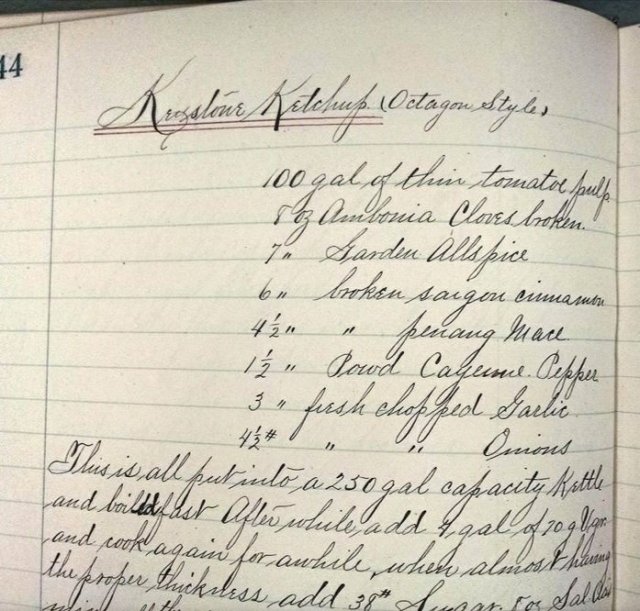 44
Keystone Ketchup (Octagon Style)
100 gal of thin tomatoe pulp
8 oz Ambonia Cloves broken.
7 " Garden Allspice
6 " broken saigon cinnamon
4½ " " penang Mace
1½ " Powd Cayenne Pepper
3 " fresh chopped Garlic
4½ # " " Onions
This is all put into a 250 gal capacity Kettle
and boiled fast After while, add 4 gal of 70 g Vgar
and cook again for awhile, when almost having
the proper thickness add 38# Sugar, 5 oz Sal